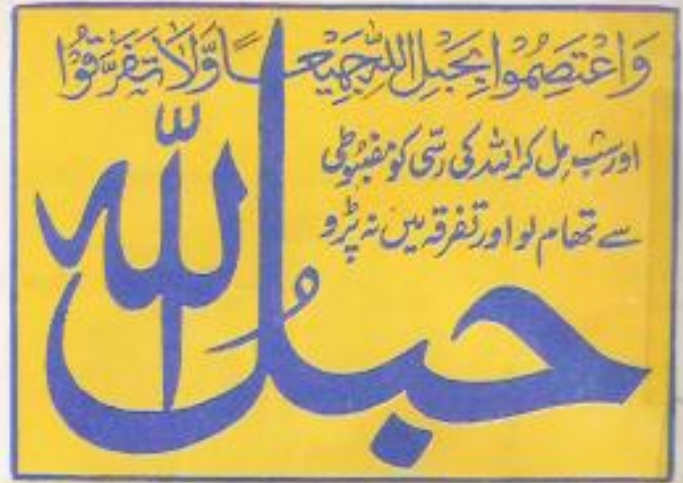 وَاعْتَصِمُوا بِحَبْلِ اللهِ جَمِيْعًا وَّلَا تَفَرَّقُوْا
اور سب مل کر اللہ کی رسّی کو مضبُوطی
سے تھام لو اور تفرقہ میں نہ پڑو
حبلُ اللہ